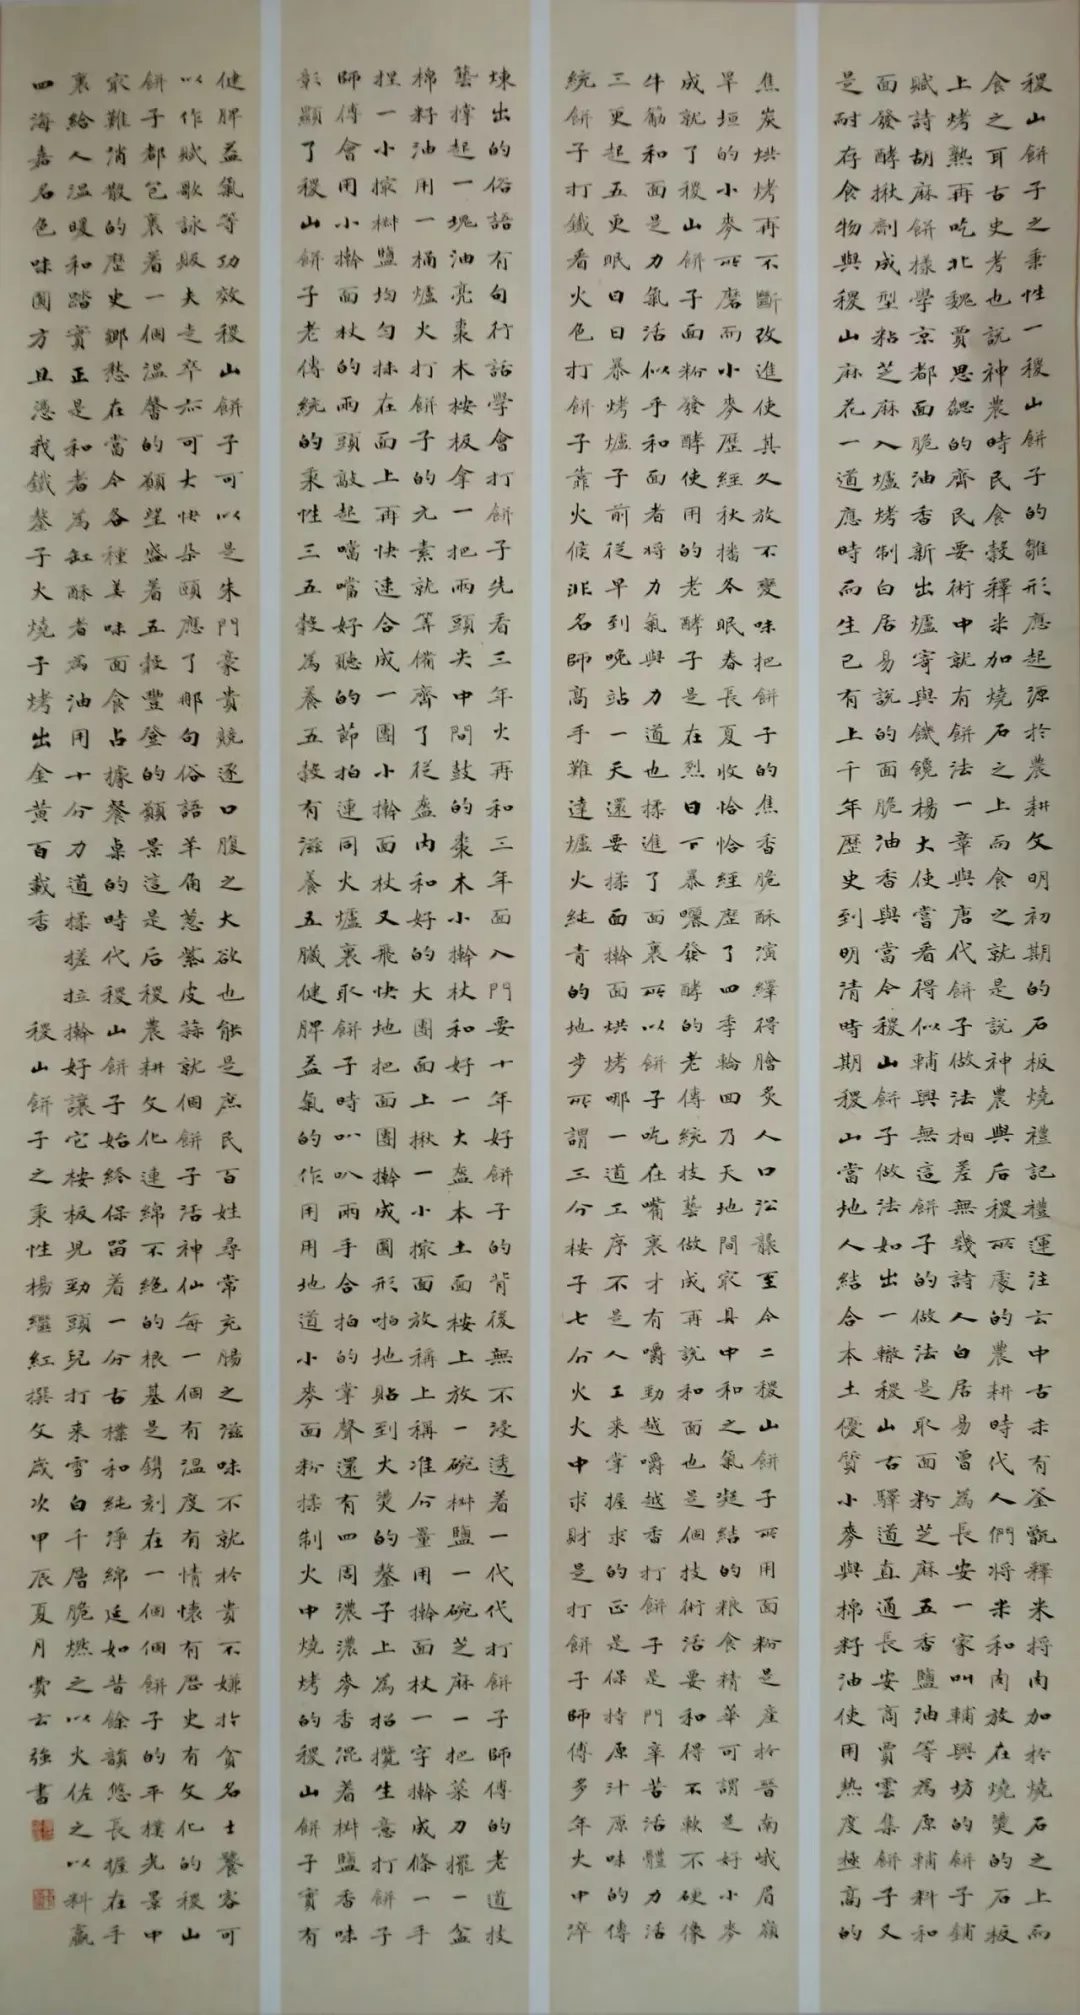 稷山餅子之秉性一稷山餅子的雛形應起源於農耕文明初期的石板燒禮記禮運注云中古未有釜甑釋米捋肉加於燒石之上而
食之耳古史考也說神農時民食穀釋米加燒石之上而食之就是說神農與后稷所處的農耕時代人們將米和肉放在燒燙的石板
上烤熟再吃北魏賈思勰的齊民要術中就有餅法一章與唐代餅子做法相差無幾詩人白居易曾為長安一家叫輔興坊的餅子鋪
賦詩胡麻餅樣學京都面脆油香新出爐寄與飢饞楊大使嘗看得似輔興無這餅子的做法是取面粉芝麻五香鹽油等為原輔料和
面發酵揪劑成型粘芝麻入爐烤制而白居易說的面脆油香與當今稷山餅子做法如出一轍稷山古驛道直通長安商賈雲集餅子又
是耐存食物與稷山麻花一道應時而生已有上千年歷史到明清時期稷山當地人結合本土優質小麥與棉籽油使用熱度極高的
焦炭烘烤再不斷改進使其久放不變味把餅子的焦香脆酥演繹得膾炙人口沿襲至今二稷山餅子所用面粉是產於晉南峨眉嶺
旱垣的小麥所磨而小麥歷經秋播冬眠春長夏收恰恰經歷了四季輪回乃天地間最具中和之氣凝結的粮食精華可謂是好小麥
成就了稷山餅子面粉發酵使用的老酵子是在烈日下暴曬發酵的老傳統技藝做成再說和面也是個技術活要和得不軟不硬像
牛筋和面是力氣活似乎和面者將力氣與力道也揉進了面裏所以餅子吃在嘴裏才有嚼勁越嚼越香打餅子是門辛苦活體力活
三更起五更眠日日暴烤爐子前從早到晚站一天還要揉面擀面烘烤哪一道工序不是人工来掌握求的正是保持原汁原味的傳
統餅子打鐵看火色打餅子靠火候非名師高手難達爐火純青的地步所謂三分桉子七分火火中求財是打餅子師傅多年火中淬
煉出的俗語有句行話學會打餅子先看三年火再和三年面入門要十年好餅子的背後無不浸透着一代代打餅子師傅的老道技
藝撐起一塊油亮棗木桉板拿一把兩頭尖中間鼓的棗木小擀杖和好一大盔本土面桉上放一碗椒鹽一碗芝麻一把菜刀擺一盆
棉籽油用一桶爐火打餅子的元素就算備齊了從盔內和好的大團面上揪一小撮面放稱上稱准分量用擀面杖一字擀成條一手
捏一小撮椒鹽均勻抹在面上再快速合成一團小擀面杖又飛快地把面團擀成圓形啪地貼到大燙的鏊子上為招攬生意打餅子
師傅會用小擀面杖的兩頭敲起噹噹好聽的節拍連同火爐裏取餅子時叭叭兩手合拍的掌聲還有四周濃濃麥香混着椒鹽香味
彰顯了稷山餅子老傳統的秉性三五穀為養五穀有滋養五臟健脾益氣的作用用地道小麥面粉揉制火中燒烤的稷山餅子實有
健脾益氣等功效稷山餅子可以是朱門豪貴競逐口腹之大欲也能是庶民百姓尋常充腸之滋味不就於貴不嫌於貧名士饕客可
以作賦歌詠販夫走卒亦可大快朵頤應了那句俗語羊角蔥紫皮蒜就個餅子活神仙每一個有溫度有情懷有歷史有文化的稷山
餅子都包裹着一個溫馨的願望盛着五穀豐登的願景這是后稷農耕文化連綿不絕的根基是鐫刻在一個個餅子的平樸光景中
最難消散的歷史鄉愁在當今各種美味面食占據餐桌的時代稷山餅子始終保留着一分古樸和純淨綿延如昔餘韻悠長握在手
裏給人溫暖和踏實正是和者為缸酥者為油用十分力道揉搓拉擀好讓它桉板見勁頭兒打来雪白千層脆燃之以火佐之以料贏
四海嘉名色味圓方且憑我鐵鏊子大燒子烤出金黃百載香 稷山餅子之秉性楊繼紅撰文歲次甲辰夏月費云強書